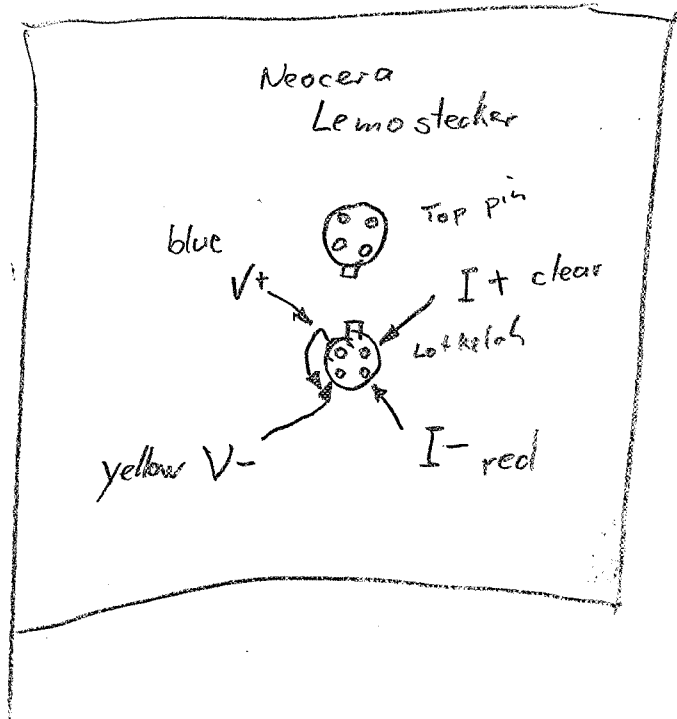 Neocera
Lemostecker
Top pin
blue
V+
I+ clear
Lötkelch
yellow V-
I- red